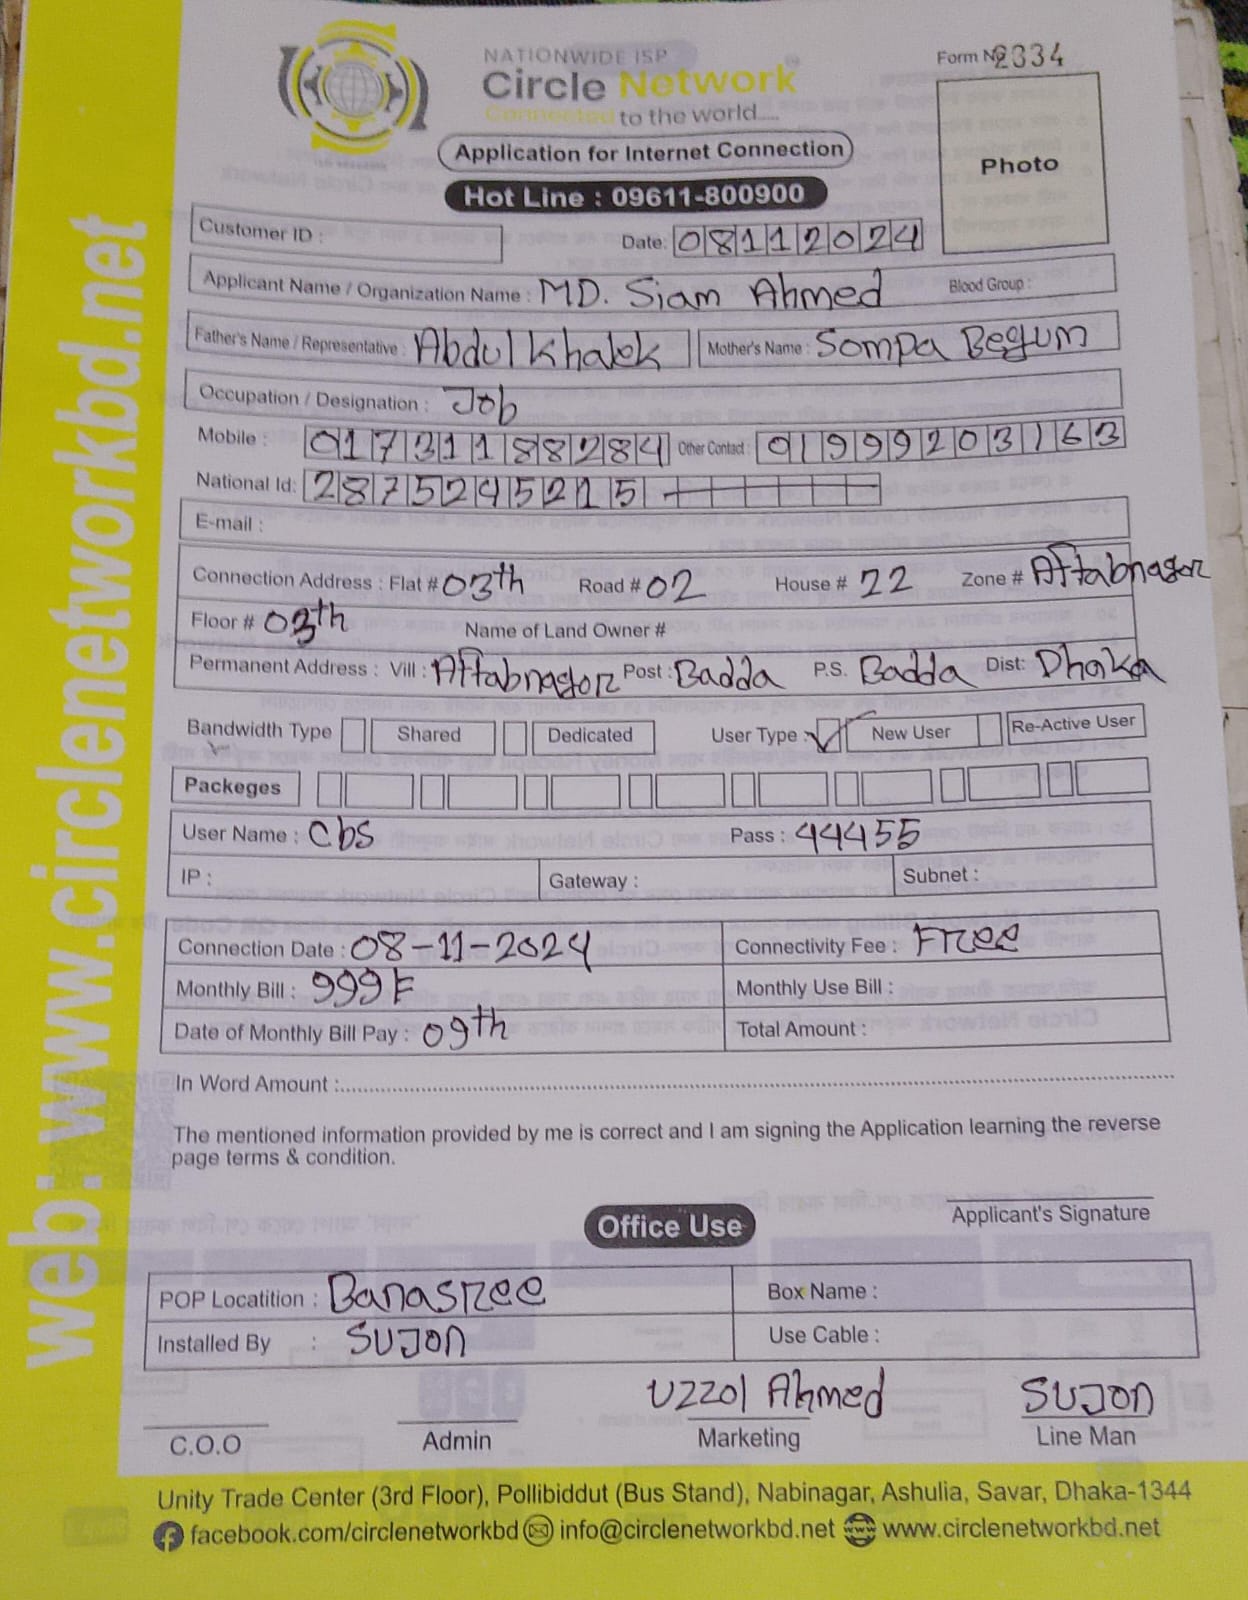 web: www.circlenetworkbd.net
NATIONWIDE ISP
Circle Network
Connected to the world.....
Form № 2334
Application for Internet Connection
Photo
Hot Line : 09611-800900
Customer ID :
Date: 08112024
Applicant Name / Organization Name : MD. Siam Ahmed Blood Group :
Father's Name / Representative : Abdul Khalek Mother's Name : Sompa Begum
Occupation / Designation : Job
Mobile : 01731188284 Other Contact : 01999203163
National Id: 2875245215
E-mail :
Connection Address : Flat # 03th Road # 02 House # 22 Zone # Aftabnagor
Floor # 03th Name of Land Owner #
Permanent Address : Vill : Aftabnagor Post : Badda P.S. Badda Dist: Dhaka
Bandwidth Type Shared Dedicated User Type : New User Re-Active User
Packeges
User Name : cbs Pass : 44455
IP : Gateway : Subnet :
Connection Date : 08-11-2024 Connectivity Fee : Free
Monthly Bill : 999 ৳ Monthly Use Bill :
Date of Monthly Bill Pay : 09th Total Amount :
In Word Amount :
The mentioned information provided by me is correct and I am signing the Application learning the reverse
page terms & condition.
Applicant's Signature
Office Use
POP Locatition : Banasree Box Name :
Installed By : SUJON Use Cable :
Uzzol Ahmed SUJON
C.O.O Admin Marketing Line Man
Unity Trade Center (3rd Floor), Pollibiddut (Bus Stand), Nabinagar, Ashulia, Savar, Dhaka-1344
facebook.com/circlenetworkbd info@circlenetworkbd.net www.circlenetworkbd.net